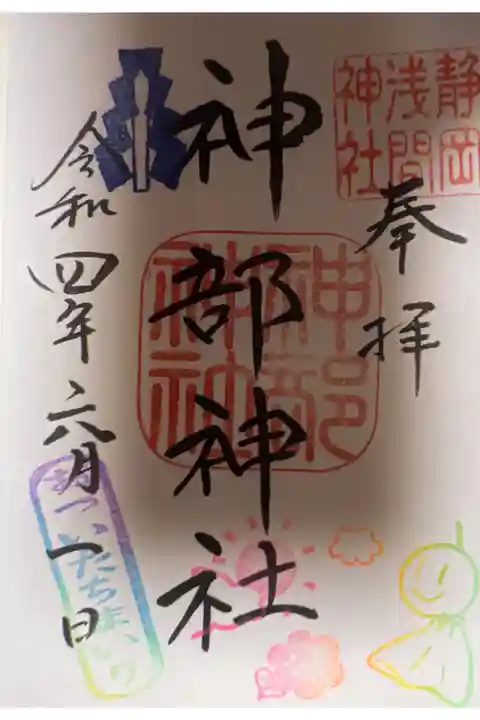 静岡
浅間
神社
奉拝
神部
神社
神部神社
令和四年六月一日
朔
ついたちまいり